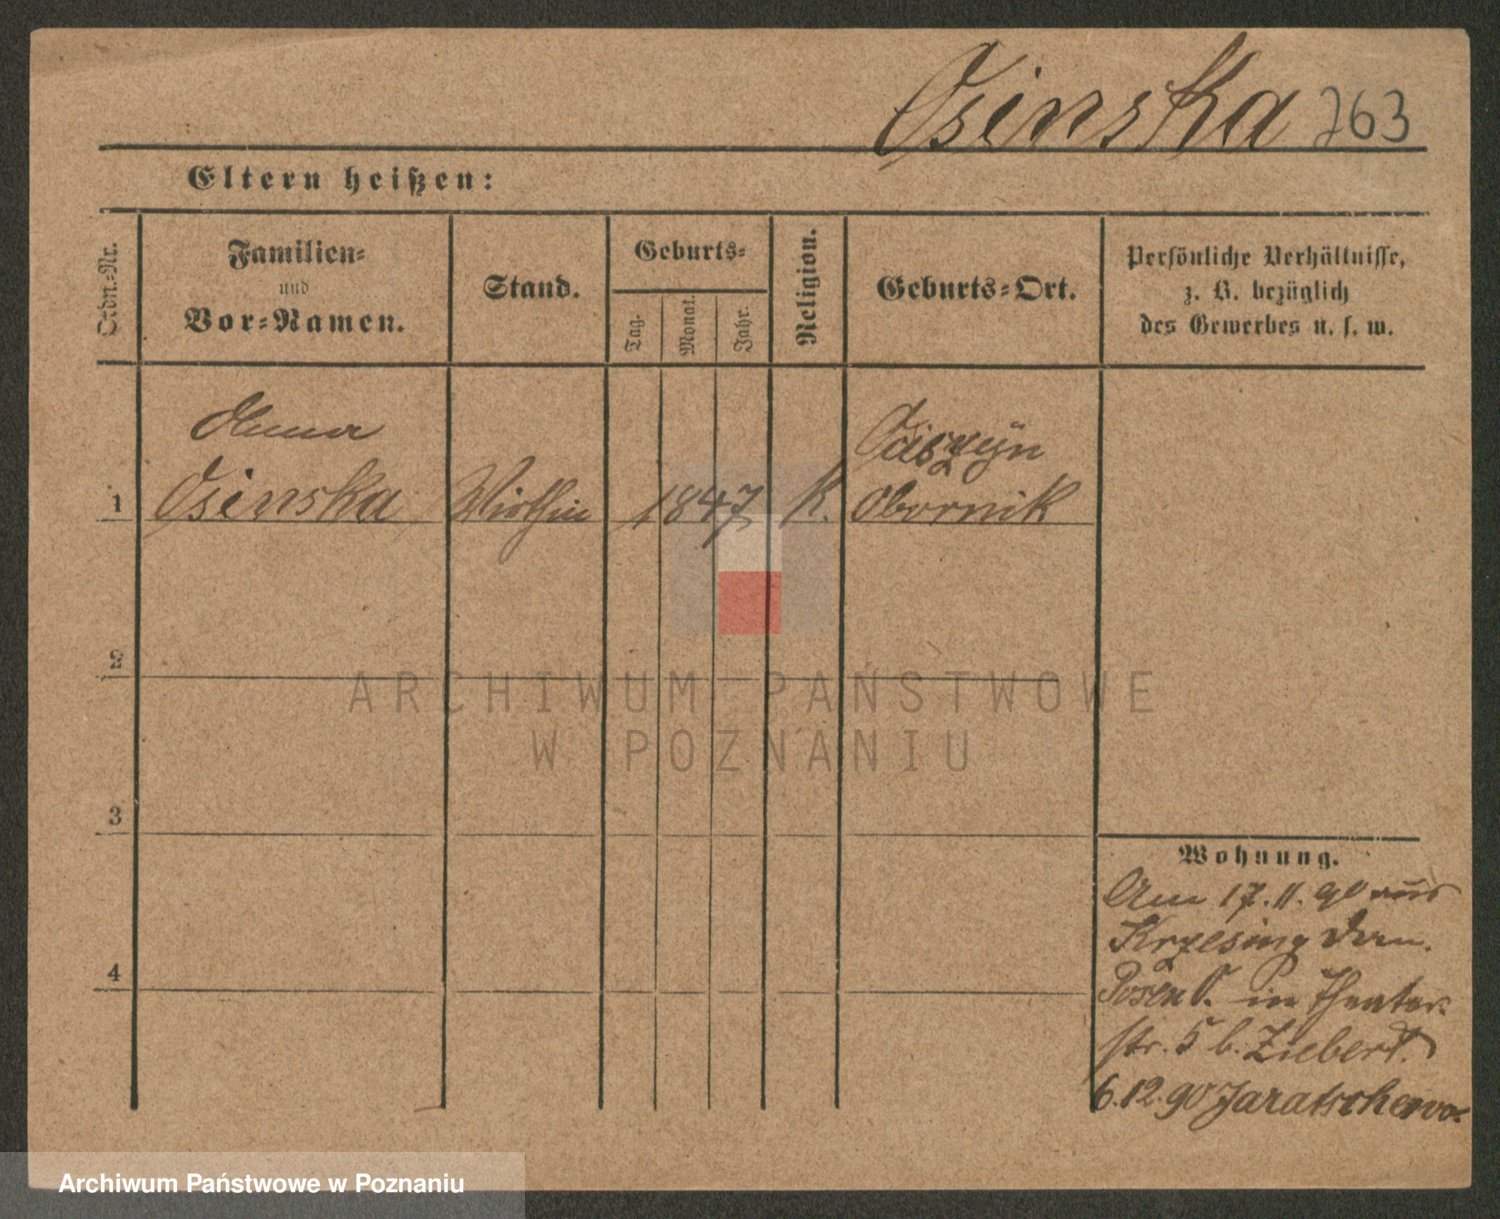 Osinska 763
Eltern heißen:
Ordn.-Nr.
Familien-
und
Vor-Namen.
Stand.
Geburts-
Tag.
Monat.
Jahr.
Religion.
Geburts-Ort.
Persönliche Verhältnisse,
z. B. bezüglich
des Gewerbes u. s. w.
1
Osinska
Wirthin
1847
K.
Obornik
2
3
4
ARCHIWUM PAŃSTWOWE
W POZNANIU
Wohnung.
Am 17.11.90 aus
Krzesing
Posen O. in Theater-
str. 5 b. Ziebert.
6.12.90 Jaratschewo.
Archiwum Państwowe w Poznaniu